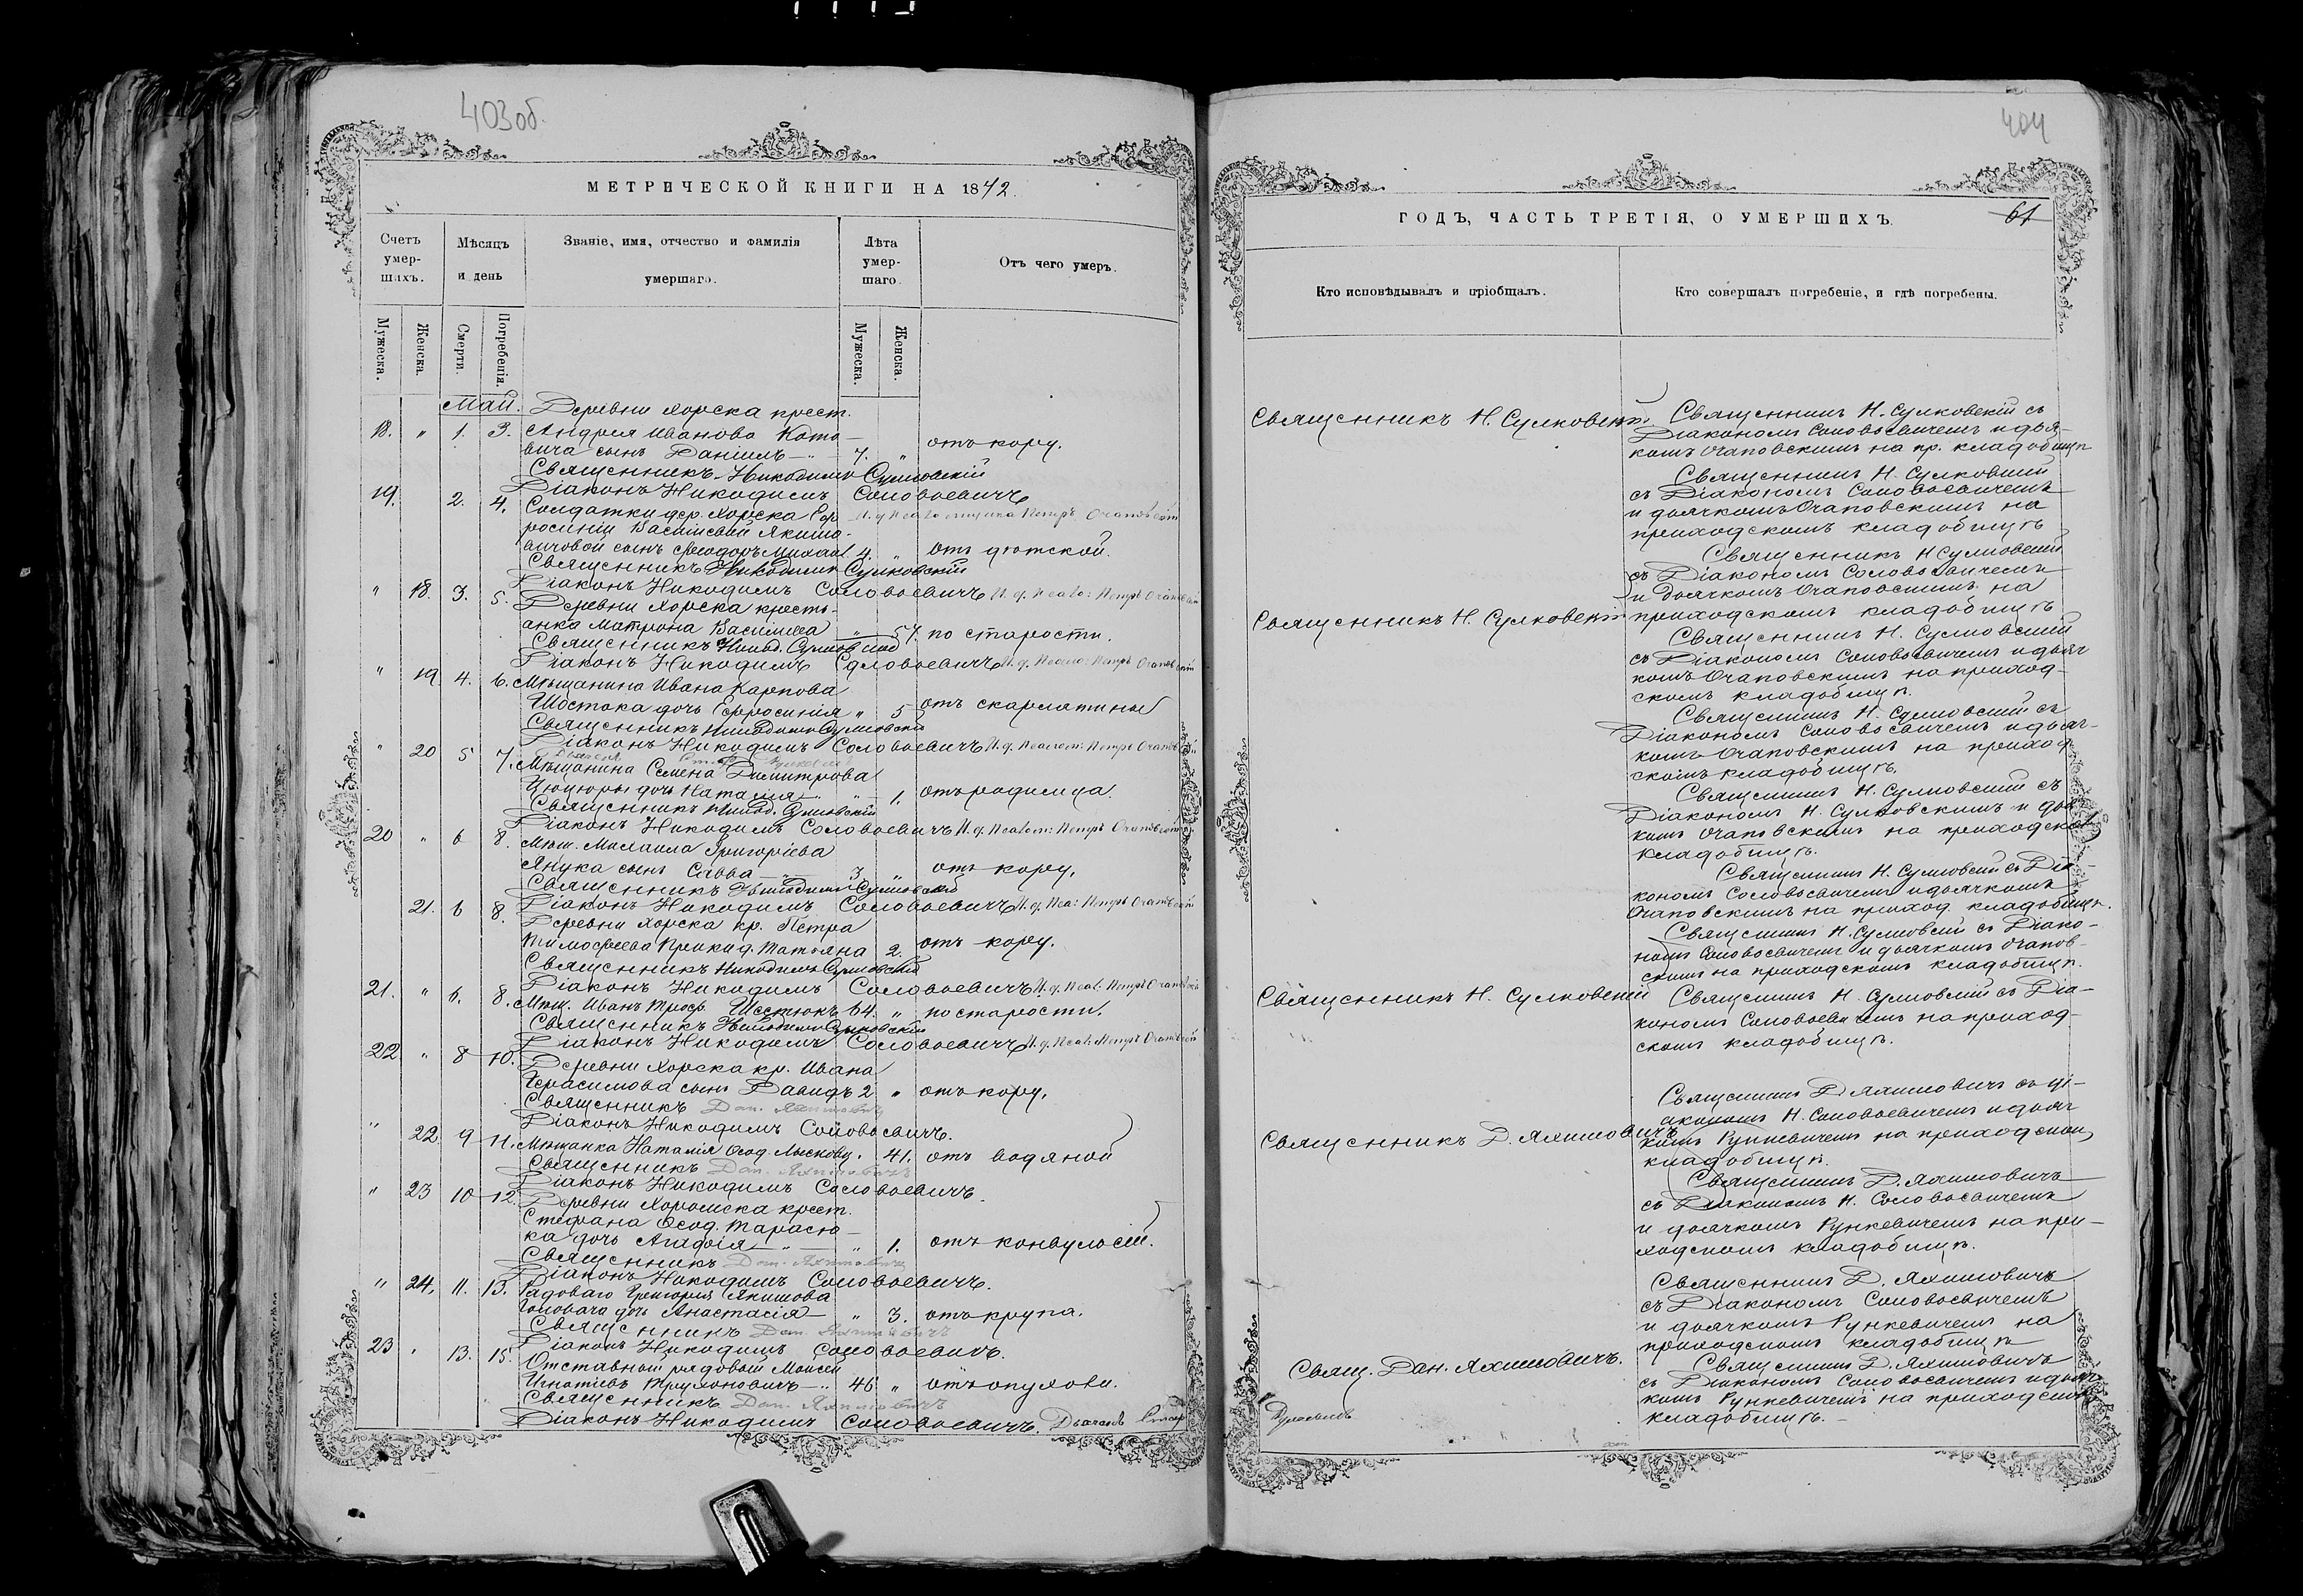 403об.
МЕТРИЧЕСКОЙ КНИГИ НА 1872.
Счетъ умер-шихъ.
Мѣсяцъ и день
Званіе, имя, отчество и фамилія умершаго.
Лѣта умер-шаго.
Отъ чего умеръ.
Мужеска.
Женска.
Смерти.
Погребенія.
Мужеска.
Женска.
Май. Деревни Хорска крест.
18. " 1. 3. Андрея Иванова Кото-
вича сынъ Даніилъ 7. " отъ кору.
Священникъ Никодимъ Сулковскій
Діаконъ Никодимъ Соловьевичъ
19. 2. 4. Солдатки дер. Хорска
Василіевой Якимо-
вичовой сынъ 4. " отъ дѣтской.
Священникъ Никодимъ Сулковскій
Діаконъ Никодимъ Соловьевичъ
" 18. 3. 5. Деревни Хорска кресть-
анка Матрона Василіева " 57. по старости.
Священникъ Никод. Сулковскій
Діаконъ Никодимъ Соловьевичъ
" 19. 4. 6. Мѣщанина Ивана Карпова
Шостака дочь Ефросинія " 5 отъ скарлатины
Священникъ Никодимъ Сулковскій
Діаконъ Никодимъ Соловьевичъ
" 20 5 7. Мѣщанина Семена Димитрова
дочь Наталія " 1. отъ родимца.
Священникъ Никод. Сулковскій
Діаконъ Никодимъ Соловьевичъ
20 " 6 8. Мѣщ. Михаила Григоріева
Янука сынъ Савва 3 " отъ кору.
Священникъ Никодимъ Сулковскій
21. 6 8. Діаконъ Никодимъ Соловьевичъ
Деревни Хорска кр. Петра
Тимофеева д. Татьяна 2. отъ кору.
Священникъ Никодимъ Сулковскій
Діаконъ Никодимъ Соловьевичъ
21. " 6. 8. Мѣщ. Иванъ Троф. Шестюкъ 64. " по старости.
Священникъ Никодимъ Сулковскій
Діаконъ Никодимъ Соловьевичъ
22 " 8 10. Деревни Хорска кр. Ивана
Герасимова сынъ Давидъ 2 " отъ кору.
Священникъ Дан. Яхимовичъ
Діаконъ Никодимъ Соловьевичъ.
" 22 9 11. Мѣщанка Наталія Ѳеод. 41. отъ водяной
Священникъ Дан. Яхимовичъ
Діаконъ Никодимъ Соловьевичъ.
" 23 10 12. Деревни Хоромска крест.
Стефана Ѳеод. Тарасю-
ка дочь Агафія " 1. отъ конвульсій.
Священникъ Дан. Яхимовичъ
Діаконъ Никодимъ Соловьевичъ.
" 24. 11. 13. Рядоваго Григорія Якимова
Головача дочь Анастасія " 3. отъ крупа.
Священникъ Дан. Яхимовичъ
Діаконъ Никодимъ Соловьевичъ.
23 13. 15. Отставный рядовый Моисей
Игнатіевъ Трухоновичъ 46 " отъ опухоли.
Священникъ Дан. Яхимовичъ
Діаконъ Никодимъ Соловьевичъ.
404
ГОДЪ, ЧАСТЬ ТРЕТІЯ, О УМЕРШИХЪ.
61
Кто исповѣдывалъ и пріобщалъ.
Кто совершалъ погребеніе, и гдѣ погребены.
Священникъ Н. Сулковскій
Священникъ Н. Сулковскій съ
Діакономъ Соловьевичемъ и дья-
комъ Очаповскимъ на пр. кладбищѣ
Священникъ Н. Сулковскій
съ Діакономъ Соловьевичемъ
и дьячкомъ Очаповскимъ на
приходскомъ кладбищѣ
Священникъ Н. Сулковскій
съ Діакономъ Соловьевичемъ
и дьячкомъ Очаповскимъ на
Священникъ Н. Сулковскій
приходскомъ кладбищѣ
Священникъ Н. Сулковскій
съ Діакономъ Соловьевичемъ и дьяч
комъ Очаповскимъ на приход-
скомъ кладбищѣ.
Священникъ Н. Сулковскій съ
Діакономъ Соловьевичемъ и дьяч-
комъ Очаповскимъ на приход
скомъ кладбищѣ.
Священникъ Н. Сулковскій съ
Діакономъ Н. Сулковскимъ и дья
комъ Очаповскимъ на приходском
кладбищѣ.
Священникъ Н. Сулковскій съ Діа-
кономъ Соловьевичемъ и дьячкомъ
Очаповскимъ на приход. кладбищѣ.
Священникъ Н. Сулковскій съ Діако-
номъ Соловьевичемъ и дьячкомъ Очапов-
скимъ на приходскомъ кладбищѣ.
Священникъ Н. Сулковскій
Священникъ Н. Сулковскій съ Діа-
кономъ Соловьевичемъ на приход-
скомъ кладбищѣ.
Священникъ Д. Яхимовичъ съ ді-
акономъ Н. Соловьевичемъ и дьяч
Священникъ Д. Яхимовичъ
комъ Рункевичемъ на приходском
кладбищѣ.
Священникъ Д. Яхимовичъ
съ Діакономъ Н. Соловьевичемъ
и дьячкомъ Рункевичемъ на при-
ходскомъ кладбищѣ.
Священникъ Д. Яхимовичъ
съ Діакономъ Соловьевичемъ
и дьячкомъ Рункевичемъ на
приходскомъ кладбищѣ
Свящ. Дан. Яхимовичъ.
Священникъ Д. Яхимовичъ
съ Діакономъ Соловьевичемъ и дьяч
комъ Рункевичемъ на приходском
кладбищѣ.